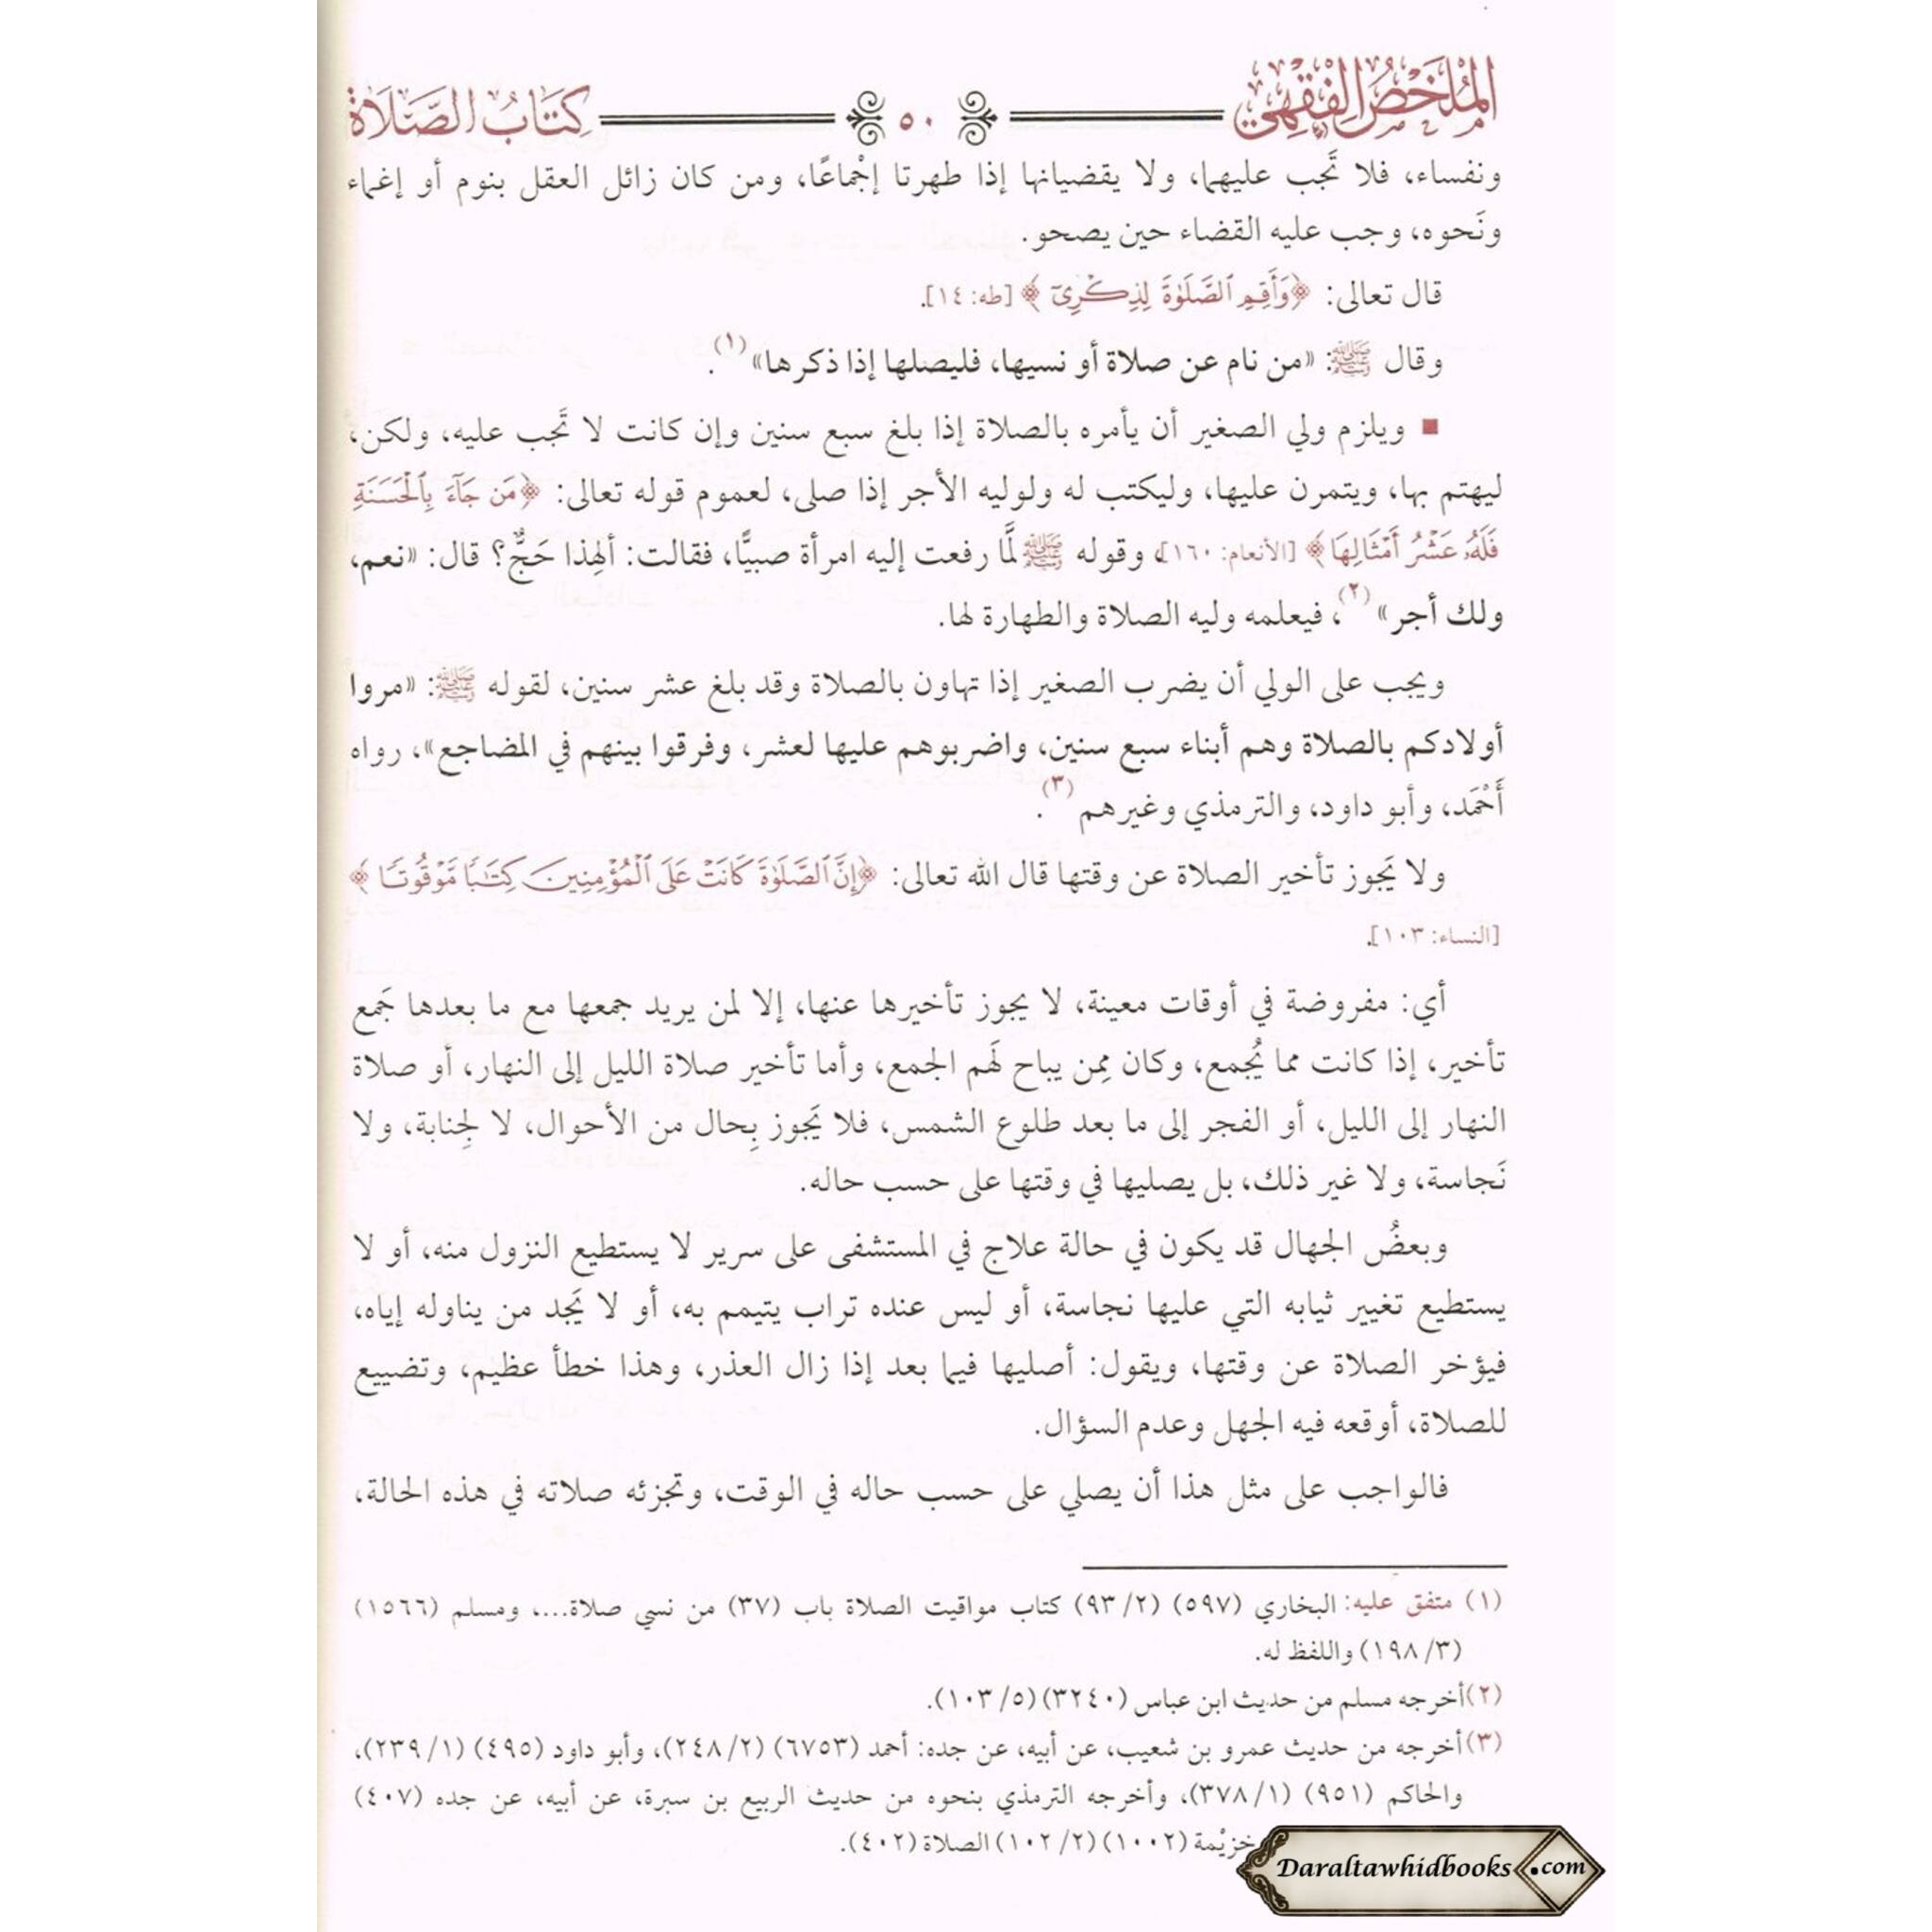 الملخص الفقهي ٥٠ كتاب الصلاة
ونفساء، فلا تَجب عليهما، ولا يقضيانها إذا طهرتا إجْماعًا، ومن كان زائل العقل بنوم أو إغماء
ونَحوه، وجب عليه القضاء حين يصحو.
قال تعالى: ﴿وَأَقِمِ ٱلصَّلَوٰةَ لِذِكْرِىٓ﴾ [طه: ١٤].
وقال ﷺ: «من نام عن صلاة أو نسيها، فليصلها إذا ذكرها» (١).
■ ويلزم ولي الصغير أن يأمره بالصلاة إذا بلغ سبع سنين وإن كانت لا تَجب عليه، ولكن،
ليهتم بها، ويتمرن عليها، وليكتب له ولوليه الأجر إذا صلى، لعموم قوله تعالى: ﴿مَن جَآءَ بِٱلْحَسَنَةِ
فَلَهُۥ عَشْرُ أَمْثَالِهَا﴾ [الأنعام: ١٦٠]، وقوله ﷺ لَمَّا رفعت إليه امرأة صبيًّا، فقالت: ألِهذا حَجٌّ؟ قال: «نعم،
ولك أجر» (٢)، فيعلمه وليه الصلاة والطهارة لها.
ويجب على الولي أن يضرب الصغير إذا تهاون بالصلاة وقد بلغ عشر سنين، لقوله ﷺ: «مروا
أولادكم بالصلاة وهم أبناء سبع سنين، واضربوهم عليها لعشر، وفرقوا بينهم في المضاجع»، رواه
أَحْمَد، وأبو داود، والترمذي وغيرهم (٣).
ولا يَجوز تأخير الصلاة عن وقتها قال الله تعالى: ﴿إِنَّ ٱلصَّلَوٰةَ كَانَتْ عَلَى ٱلْمُؤْمِنِينَ كِتَٰبًا مَّوْقُوتًا﴾
[النساء: ١٠٣].
أي: مفروضة في أوقات معينة، لا يجوز تأخيرها عنها، إلا لمن يريد جمعها مع ما بعدها جَمع
تأخير، إذا كانت مما يُجمع، وكان مِمن يباح لَهم الجمع، وأما تأخير صلاة الليل إلى النهار، أو صلاة
النهار إلى الليل، أو الفجر إلى ما بعد طلوع الشمس، فلا يَجوز بِحال من الأحوال، لا لِجنابة، ولا
نَجاسة، ولا غير ذلك، بل يصليها في وقتها على حسب حاله.
وبعضُ الجهال قد يكون في حالة علاج في المستشفى على سرير لا يستطيع النزول منه، أو لا
يستطيع تغيير ثيابه التي عليها نجاسة، أو ليس عنده تراب يتيمم به، أو لا يَجد من يناوله إياه،
فيؤخر الصلاة عن وقتها، ويقول: أصليها فيما بعد إذا زال العذر، وهذا خطأ عظيم، وتضييع
للصلاة، أوقعه فيه الجهل وعدم السؤال.
فالواجب على مثل هذا أن يصلي على حسب حاله في الوقت، وتجزئه صلاته في هذه الحالة،
(١) متفق عليه: البخاري (٥٩٧) (٢/ ٩٣) كتاب مواقيت الصلاة باب (٣٧) من نسي صلاة...، ومسلم (١٥٦٦)
(٣/ ١٩٨) واللفظ له.
(٢) أخرجه مسلم من حديث ابن عباس (٣٢٤٠) (٥/ ١٠٣).
(٣) أخرجه من حديث عمرو بن شعيب، عن أبيه، عن جده: أحمد (٦٧٥٣) (٢/ ٢٤٨)، وأبو داود (٤٩٥) (١/ ٢٣٩)،
والحاكم (٩٥١) (١/ ٣٧٨)، وأخرجه الترمذي بنحوه من حديث الربيع بن سبرة، عن أبيه، عن جده (٤٠٧)
خزيْمة (١٠٠٢) (٢/ ١٠٢) الصلاة (٤٠٢).
Daraltawhidbooks.com